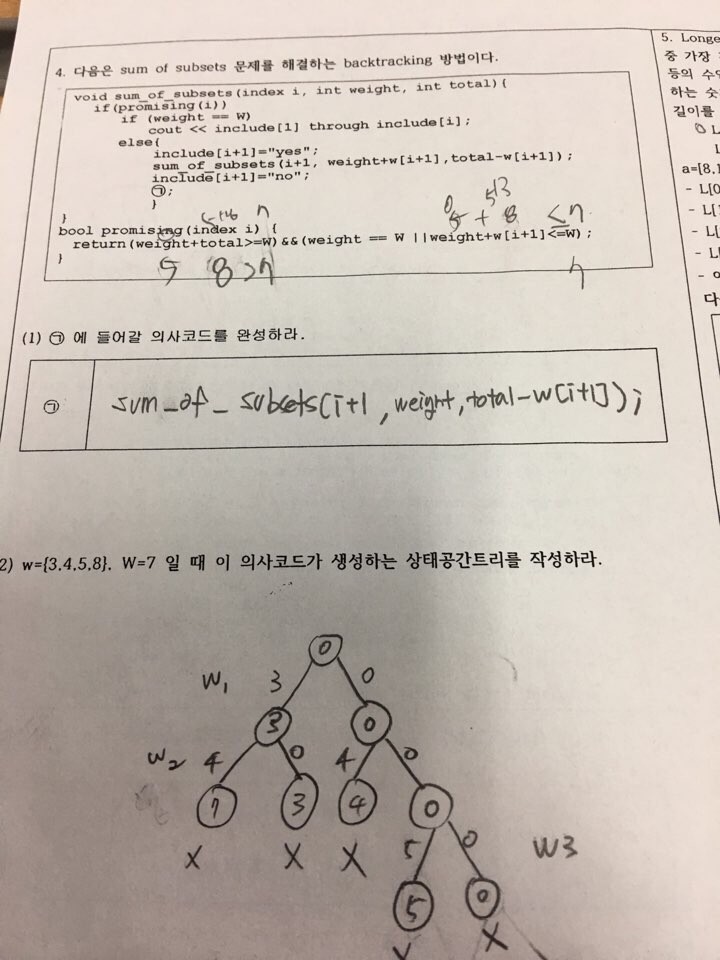 4. 다음은 sum of subsets 문제를 해결하는 backtracking 방법이다.
void sum_of_subsets(index i, int weight, int total){
if(promising(i))
if (weight == W)
cout << include[1] through include[i];
else{
include[i+1]="yes";
sum_of_subsets(i+1, weight+w[i+1],total-w[i+1]);
include[i+1]="no";
㉠;
}
}
bool promising(index i) {
return(weight+total>=W)&&(weight == W ||weight+w[i+1]<=W);
}
5 + 8 ≤ 7
5 8 > 7
(1) ㉠ 에 들어갈 의사코드를 완성하라.
㉠ sum_of_subsets(i+1, weight, total-w[i+1]);
2) w={3,4,5,8}. W=7 일 때 이 의사코드가 생성하는 상태공간트리를 작성하라.
0
W1 3 0
3 0
W2 4 0 4 0
7 3 4 0
X X X 5 0 W3
5 0
X X
5. Longe
중 가장
등의 수
하는 숫
길이를
a=[8,1
- L[0
- L[
- L[
- L[
다